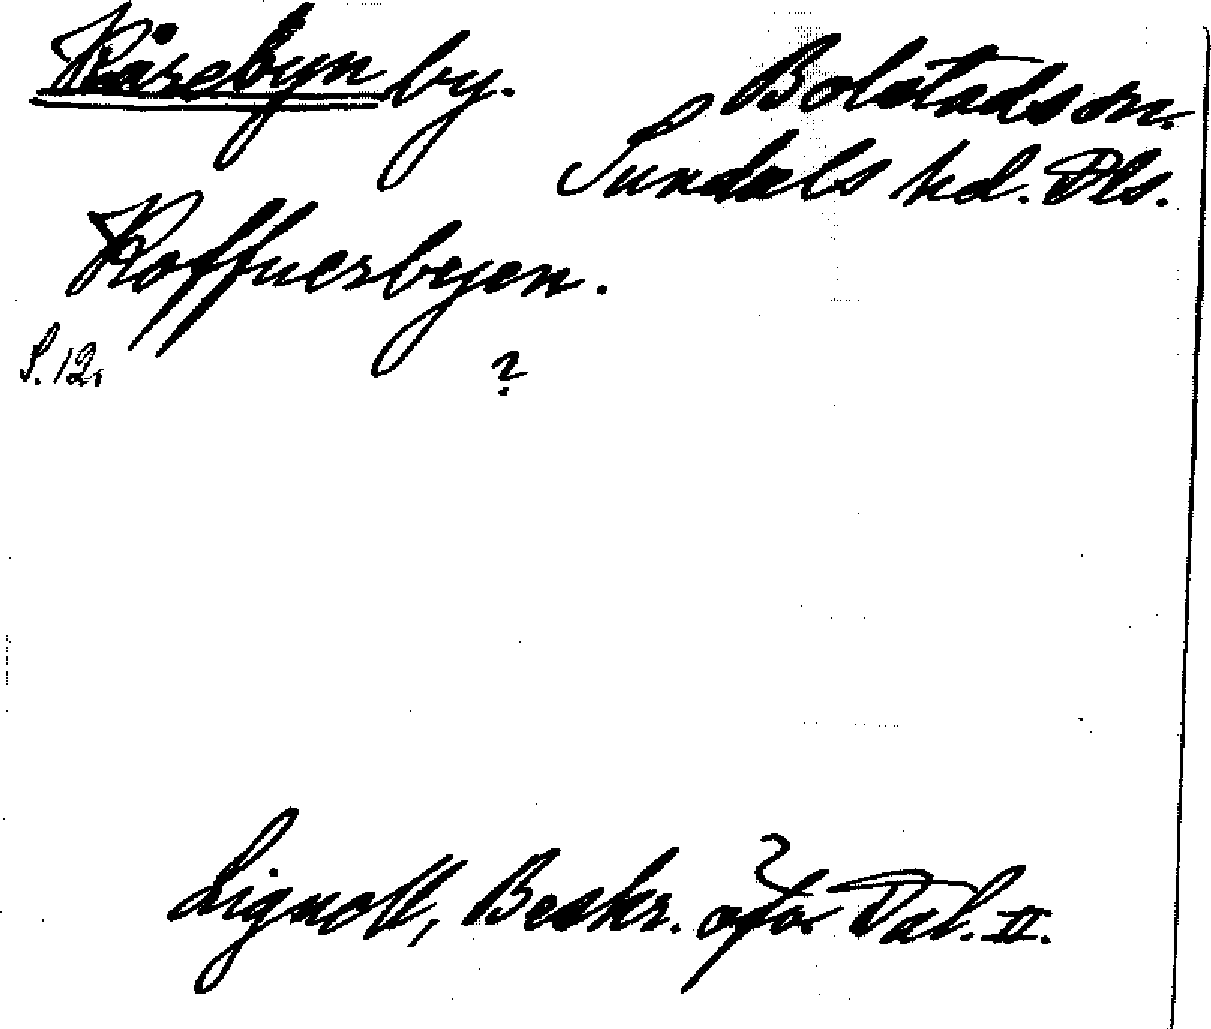 Råsebyn by. Bolstads sn.
Sundals hd. Dls.
Roffuersbyen.
S. 12. ?
Lignell, Beskr. öfr. Dal. II.